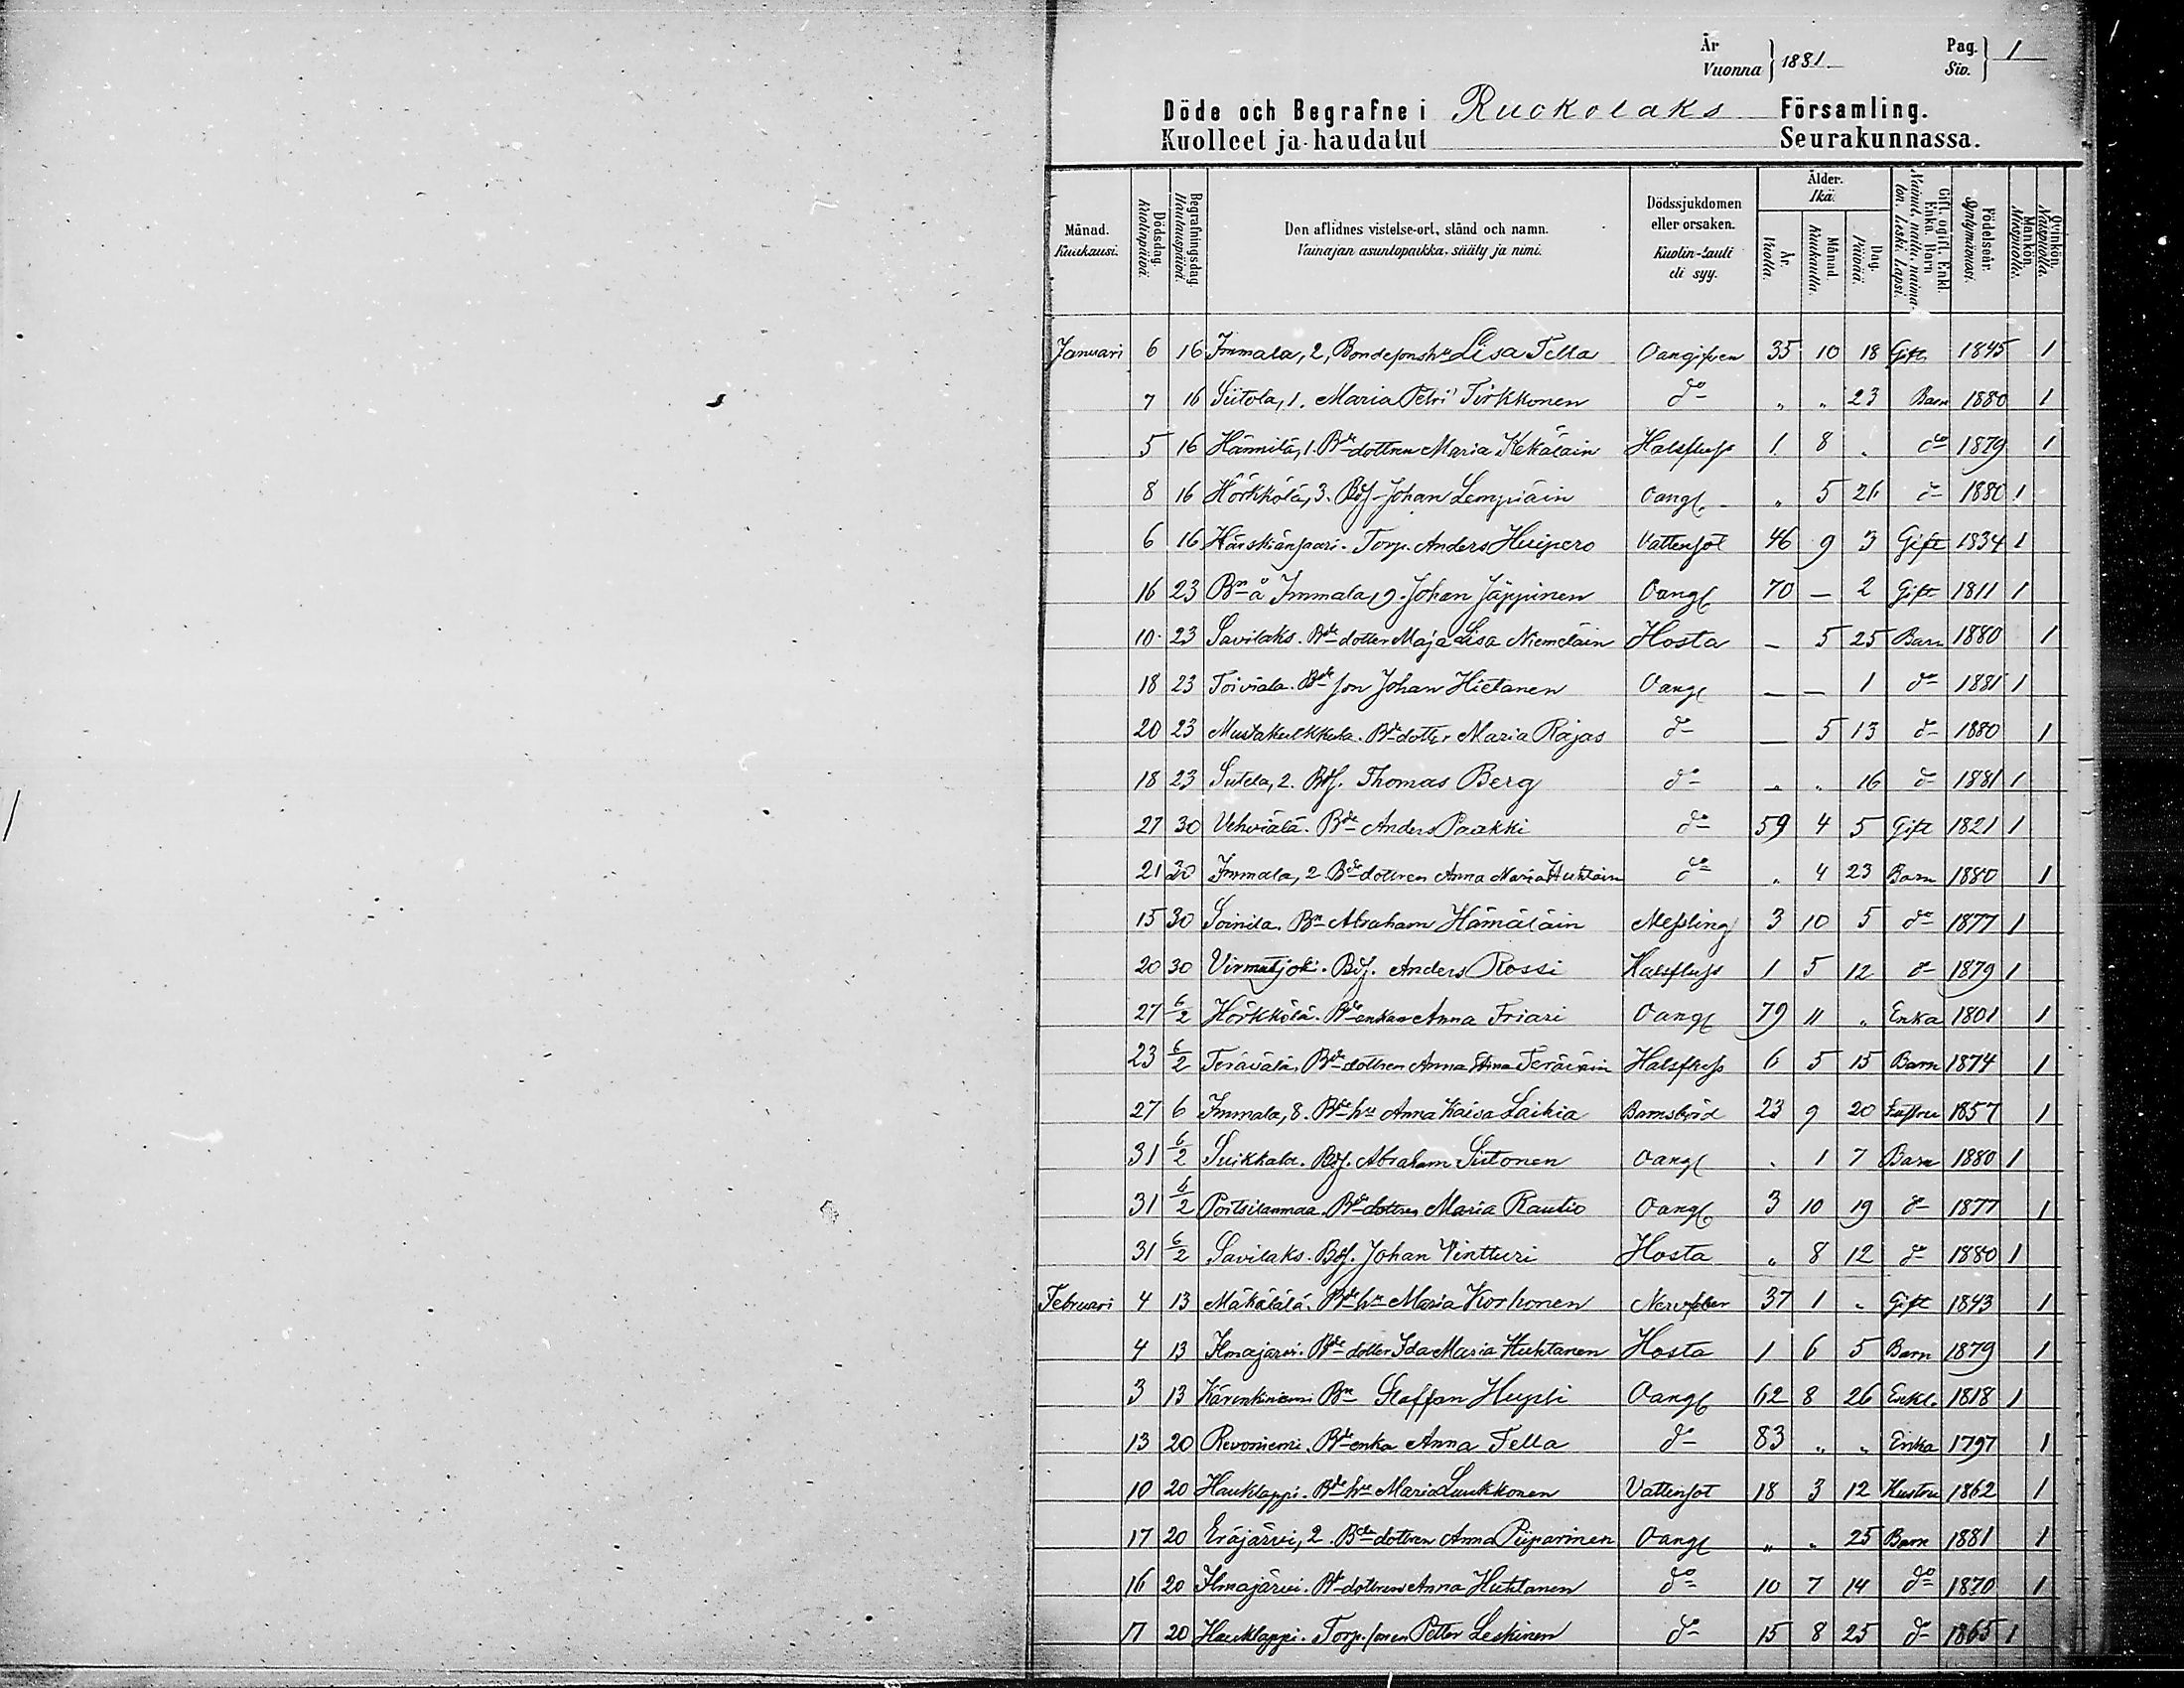 År
Vuonna } 1881
Pag.
Siv. } 1
Döde och Begrafne i Ruokolaks Församling.
Kuolleet ja haudatut Seurakunnassa.
Månad. Kuukausi.
Dödsdag. Kuolinpäivä.
Begrafningsdag. Hautauspäivä.
Den aflidnes vistelse-ort, stånd och namn.
Vainajan asuntopaikka, sääty ja nimi.
Dödssjukdomen eller orsaken.
Kuolin-tauti eli syy.
Ålder. Ikä.
År. Vuotta.
Månad. Kuukautta.
Dag. Päivää.
Gift. ogift. Enkl. Enka. Barn
Nainut, naima- ton. Leski. Lapsi.
Födelseår. Syntymävuosi.
Mankön. Miespuolia.
Qvinkön. Naispuolia.
Januari 6 16 Immala, 2, Bondesonshu Lisa Tella Oangifven 35 10 18 Gift 1845 1
7 16 Siitola, 1. Maria Petri Tirkkonen do „ „ 23 Barn 1880 1
5 16 Hännilä, 1. Bde dottren Maria Kekäläin Halsfluss 1 8 „ do 1879 1
8 16 Hörkkölä, 3. Bds. Johan Lempiäin Oangf. „ 5 26 do 1880 1
6 16 Torp. Anders Huipero Vattensot 46 9 3 Gift 1834 1
16 23 Bn å Immala, 9. Johan Jäppinen Oangf 70 — 2 Gift 1811 1
10 23 Savilaks. Bde dotter Maja Lisa Niemeläin Hosta — 5 25 Barn 1880 1
18 23 Toiviala. Bde son Johan Hietanen Oangf — — 1 do 1881 1
20 23 Bde dotter Maria Rajas do — 5 13 do 1880 1
18 23 Sutela, 2. Bds. Thomas Berg do „ „ 16 do 1881 1
27 30 Vehviälä. Bde Anders Paakki do 59 4 5 Gift 1821 1
21 30 Immala, 2. Bde dottren Anna Maria Huhtain do „ 4 23 Barn 1880 1
15 30 Soinila. Bn Abraham Hämäläin Messling 3 10 5 do 1877 1
20 30 Virmutjoki. Bds. Anders Rossi Halsfluss 1 5 12 do 1879 1
27 6/2 Hörkkölä. Bde enkan Anna Friari Oangf 79 11 „ Enka 1801 1
23 6/2 Terävälä. Bde dottren Anna Stina Teräväin Halsfluss 6 5 15 Barn 1874 1
27 6 Immala, 8. Bde hu Anna Kaisa Laihia Barnsbörd 23 9 20 Hustru 1857 1
31 6/2 Suikkala. Bds. Abraham Siitonen Oangf „ 1 7 Barn 1880 1
31 6/2 Poitsilanmaa. Bde dottren Maria Rautio Oangf 3 10 19 do 1877 1
31 6/2 Savilaks. Bds. Johan Vintturi Hosta „ 8 12 do 1880 1
Februari 4 13 Mäkälälä. Bde hu Maria Korhonen Nervfeber 37 1 „ Gift 1843 1
4 13 Ilmajärvi. Bde dotter Ida Maria Huhtanen Hosta 1 6 5 Barn 1879 1
3 13 Kärenkiniemi Bn Staffan Hupli Oangf 62 8 26 Enkl. 1818 1
13 20 Revoniemi. Bde enka Anna Tella do 83 „ „ Enka 1797 1
10 20 Hauklappi. Bde hu Maria Luukkonen Vattensot 18 3 12 Hustru 1862 1
17 20 Eräjärvi, 2. Bde dottren Anna Piiparinen Oangf „ „ 25 Barn 1881 1
16 20 Ilmajärvi. Bde dottren Anna Huhtanen do 10 7 14 do 1870 1
17 20 Hauklappi. Torp. sonen Petter Leskinen do 15 8 25 do 1865 1